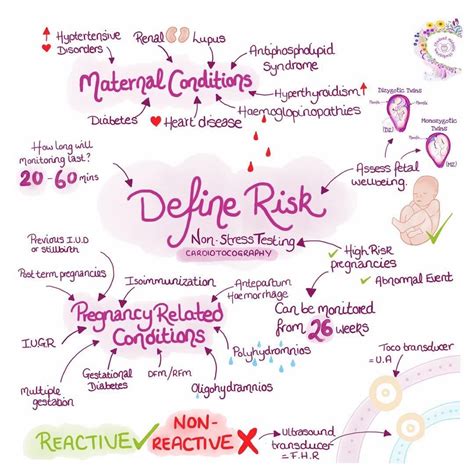 Hyptertensive
Disorders
Renal
Lupus
Antiphospholipid
Syndrome
Maternal Conditions
Hyperthyroidism
Haemoglopinopathies
Diabetes
Heart disease
Dizygotic Twins
(DZ)
Monozygotic Twins
(MZ)
How long will
monitoring last?
20-60 mins
Assess fetal
wellbeing.
Define Risk
Non-Stress Testing
CARDIOTOCOGRAPHY
High Risk
pregnancies
Abnormal Event
Previous I.U.D
or stillbirth
Post term pregnancies
Isoimmunization
Antepartum
Haemorrhage
Pregnancy Related
Conditions
Can be monitored
from 26 weeks
IUGR
Polyhydromnios
Multiple
gestation
Gestational
Diabetes
DFM/RFM
Oligohydramnios
Toco transducer
= U.A
REACTIVE
NON-
REACTIVE
Ultrasound
transducer
= F.H.R